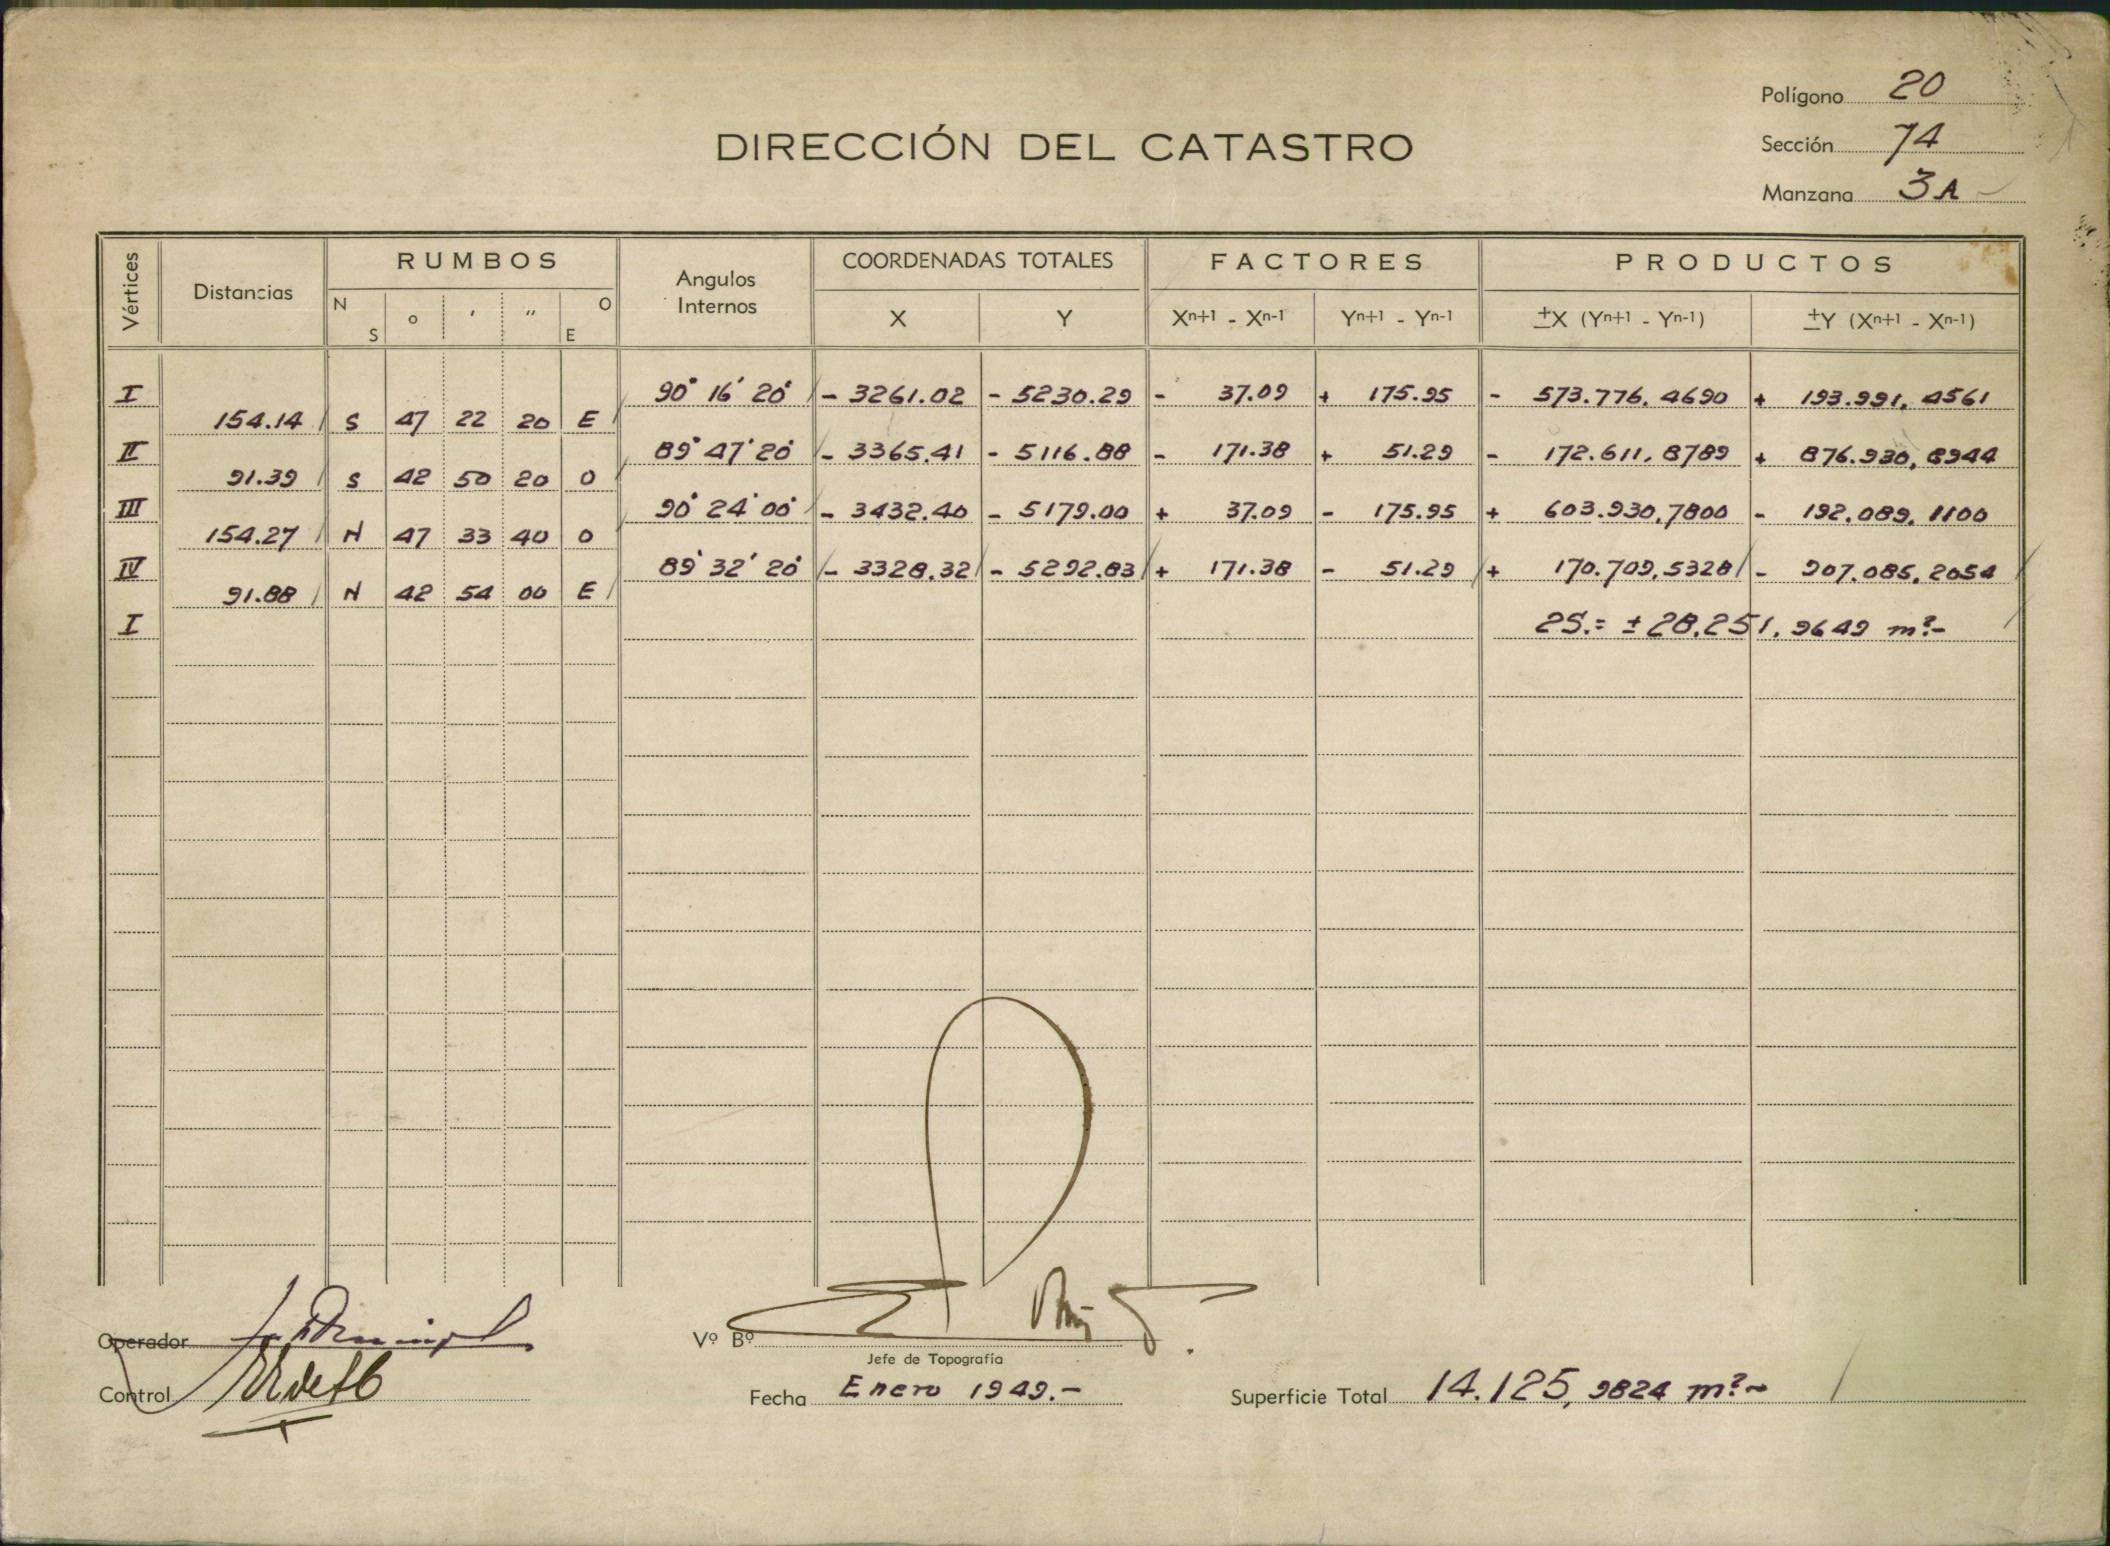 Polígono 20
DIRECCIÓN DEL CATASTRO
Sección 74
Manzana 3A
Vértices Distancias RUMBOS Angulos Internos COORDENADAS TOTALES FACTORES PRODUCTOS
N S ° ' " O E X Y Xn+1 - Xn-1 Yn+1 - Yn-1 ±X (Yn+1 - Yn-1) ±Y (Xn+1 - Xn-1)
I 90° 16' 20" - 3261.02 - 5230.29 - 37.09 + 175.95 - 573.776,4690 + 193.991,4561
154.14 S 47 22 20 E
II 89° 47' 20" - 3365.41 - 5116.88 - 171.38 + 51.29 - 172.611,8789 + 876.930,8944
91.39 S 42 50 20 O
III 90° 24' 00" - 3432.40 - 5179.00 + 37.09 - 175.95 + 603.930,7800 - 192.089,1100
154.27 N 47 33 40 O
IV 89° 32' 20" - 3328.32 - 5292.83 + 171.38 - 51.29 + 170.709,5328 - 907.085,2054
91.88 N 42 54 00 E
I 2S.= ± 28.251,9649 m².-
Operador
Vº Bº
Jefe de Topografía
Control
Fecha Enero 1949.-
Superficie Total 14.125,9824 m².-